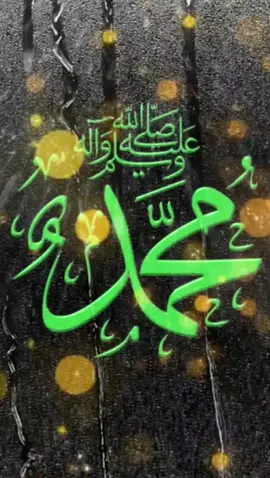 صلى الله عليه وآله وسلم
محمد